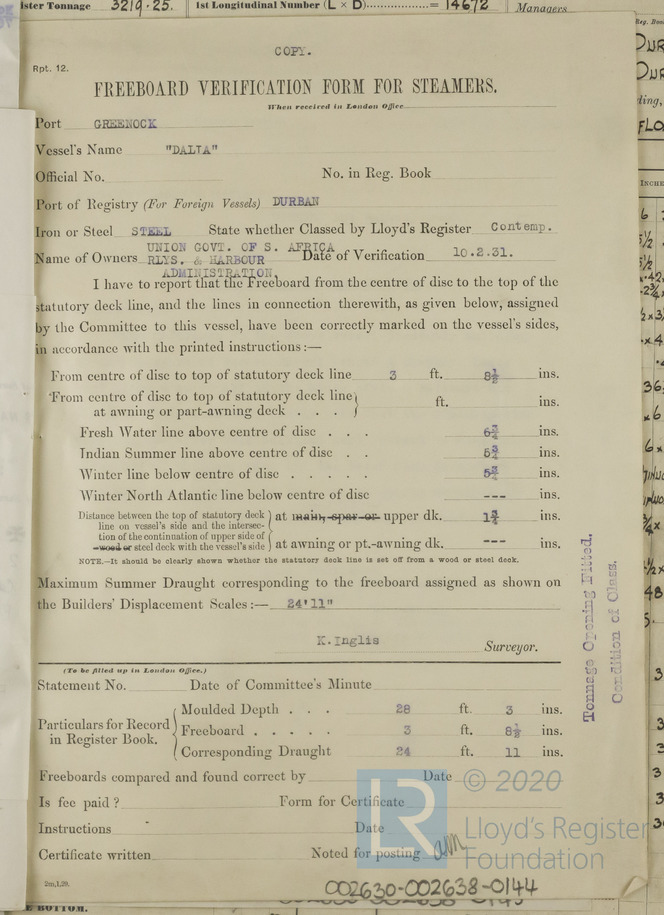 ister Tonnage 3219.25. 1st Longitudinal Number (L × D) = 14672 Managers
COPY.
Rpt. 12.
FREEBOARD VERIFICATION FORM FOR STEAMERS.
When received in London Office
Port GREENOCK
Vessel's Name "DALIA"
Official No. No. in Reg. Book
Port of Registry (For Foreign Vessels) DURBAN
Iron or Steel STEEL State whether Classed by Lloyd's Register Contemp.
Name of Owners UNION GOVT. OF S. AFRICA RLYS. & HARBOUR ADMINISTRATION. Date of Verification 10.2.31.
I have to report that the Freeboard from the centre of disc to the top of the
statutory deck line, and the lines in connection therewith, as given below, assigned
by the Committee to this vessel, have been correctly marked on the vessel's sides,
in accordance with the printed instructions:—
From centre of disc to top of statutory deck line 3 ft. 8½ ins.
From centre of disc to top of statutory deck line
at awning or part-awning deck . . . ft. ins.
Fresh Water line above centre of disc . . . 6¾ ins.
Indian Summer line above centre of disc . . 5¾ ins.
Winter line below centre of disc . . . . . 5¾ ins.
Winter North Atlantic line below centre of disc --- ins.
Distance between the top of statutory deck
line on vessel's side and the intersec-
tion of the continuation of upper side of
wood or steel deck with the vessel's side
at main, spar or upper dk. ins.
at awning or pt.-awning dk. --- ins.
NOTE.—It should be clearly shown whether the statutory deck line is set off from a wood or steel deck.
Maximum Summer Draught corresponding to the freeboard assigned as shown on
the Builders' Displacement Scales:— 24'11"
K. Inglis Surveyor.
Tonnage Opening Fitted.
Condition of Class.
(To be filled up in London Office.)
Statement No. Date of Committee's Minute
Particulars for Record
in Register Book.
Moulded Depth . . . 28 ft. 3 ins.
Freeboard . . . . . 3 ft. 8½ ins.
Corresponding Draught 24 ft. 11 ins.
Freeboards compared and found correct by Date
Is fee paid? Form for Certificate
Instructions Date
Certificate written Noted for posting
2m,1,29.
© 2020
LR
Lloyd's Register
Foundation
002630-002638-0144
E BOTTOM.